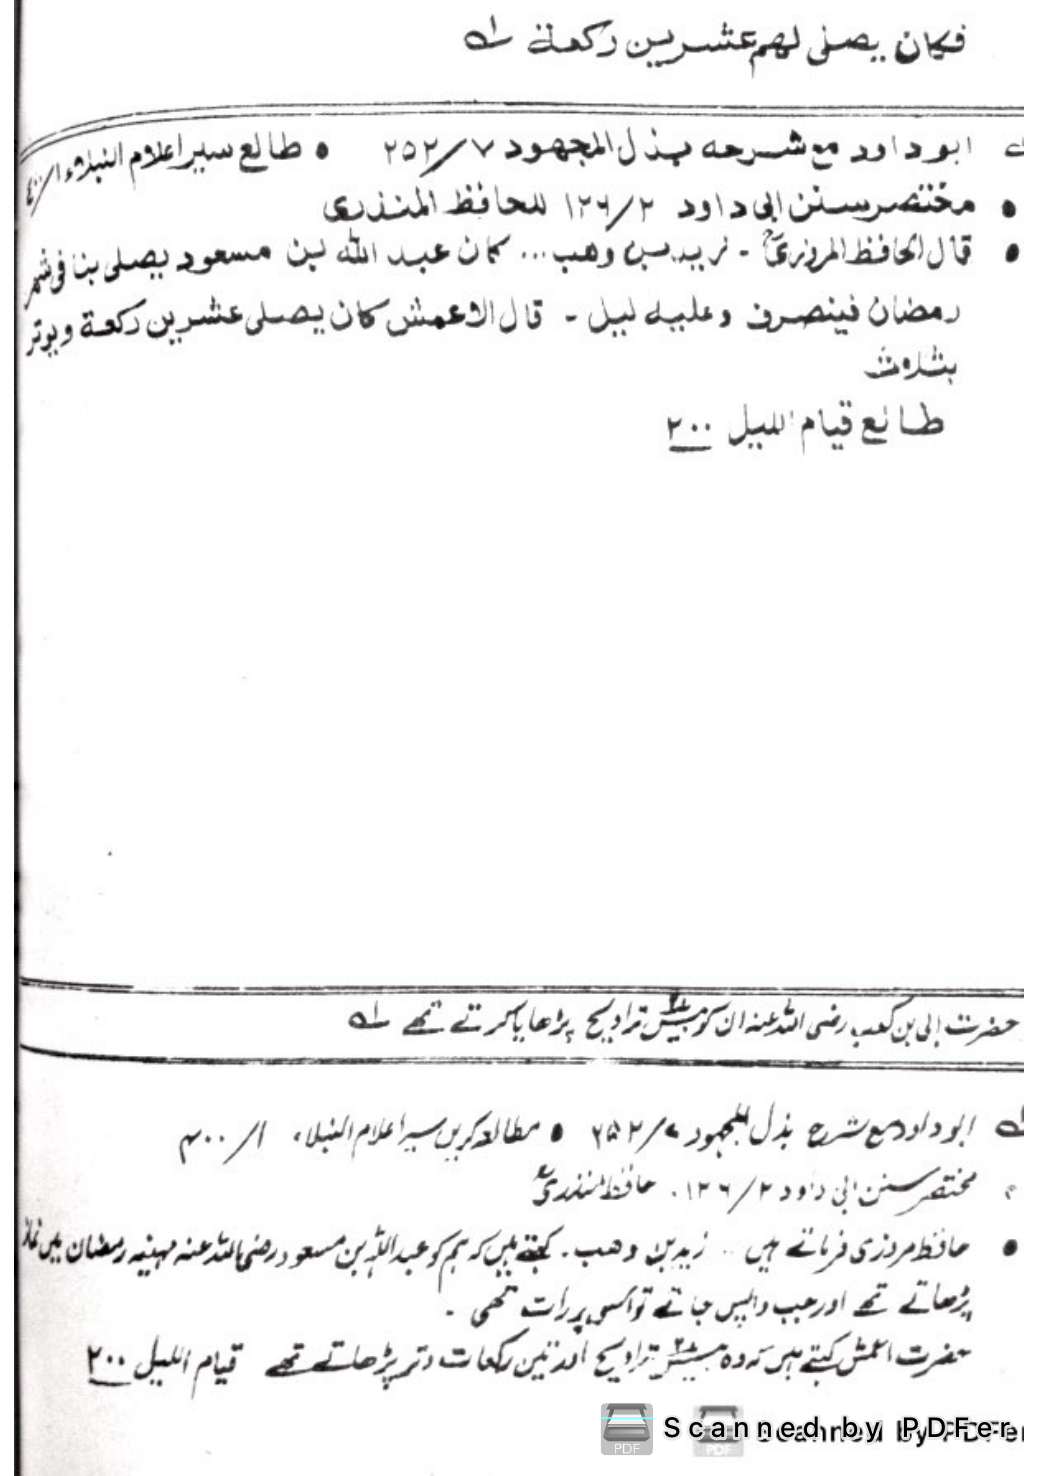 فکان یصلی لھم عشرین رکعة لہ
لہ ابو داود مع شرحه بذل المجهود ۷/۲۵۲ • طالع سیر اعلام النبلاء ۱/۴۰۰
• مختصر سنن ابی داود ۲/۱۲۶ للحافظ المنذری
• قال الحافظ المروزیؒ - زید بن وهب... کان عبد الله بن مسعود یصلی بنا فی شهر
رمضان فینصرف وعلیه لیل - قال الاعمش کان یصلی عشرین رکعة ویوتر
بثلاث
طالع قیام اللیل ۲۰۰
حضرت ابی بن کعب رضی اللہ عنہ ان کو بیس ۲۰ تراویح پڑھایا کرتے تھے لہ
لہ ابو داود مع شرح بذل المجہود ۷/۲۵۲ • مطالعہ کریں سیر اعلام النبلاء ۱/۴۰۰
• مختصر سنن ابی داود ۲/۱۲۶. حافظ منذریؒ
• حافظ مروزی فرماتے ہیں .. زید بن وھب. کہتے ہیں کہ ہم کو عبداللہ بن مسعود رضی اللہ عنہ مہینہ رمضان میں نماز
پڑھاتے تھے اور جب واپس جاتے تو اس پر رات تھی -
حضرت اعمش کہتے ہیں کہ وہ بیس ۲۰ تراویح اور تین رکعات وتر پڑھاتے تھے قیام اللیل ۲۰۰
PDF Scanned by PDFer
PDF Scanned by PDFer